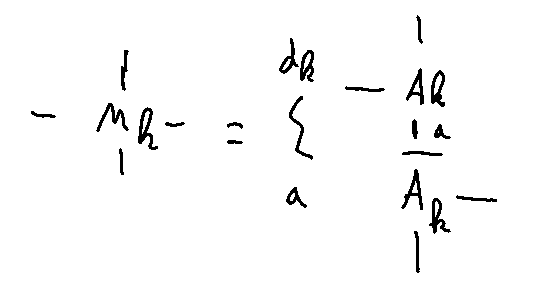 - M_k - = \sum_{a}^{d_k} - A_k
a
\overline{A}_k -